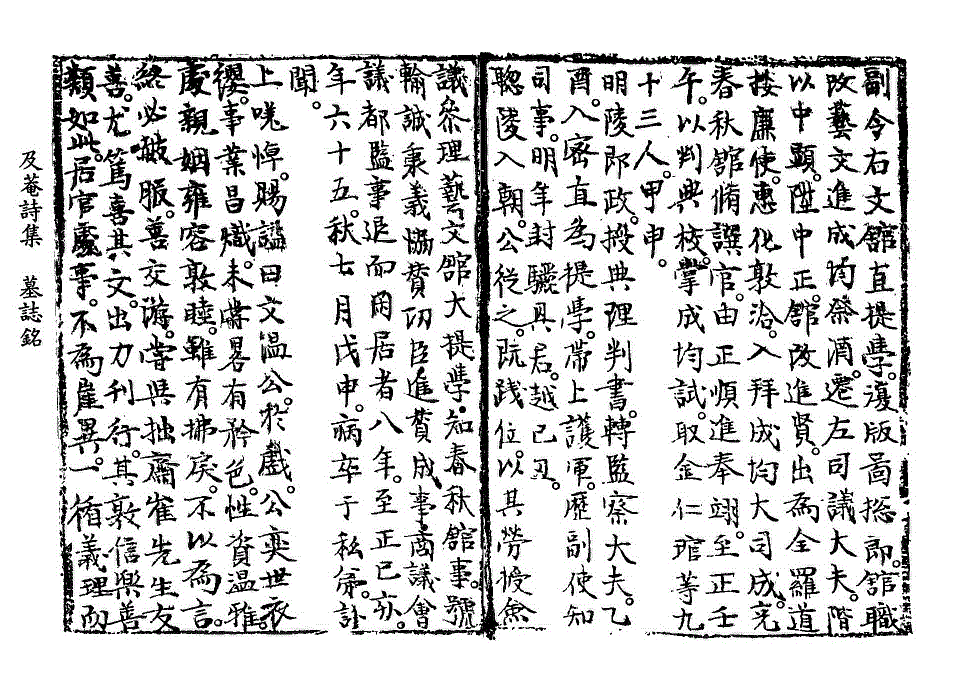 副令右文舘直提學。復版圖摠郎。舘職
改藝文進成均祭酒。遷左司議大夫。階
以中顯。陞中正。舘改進賢。出為全羅道
按廉使。惠化敦洽。入拜成均大司成。充
春秋舘脩譔官。由正順進奉翊。至正壬
午。以判典校。掌成均試。取金仁琯等九
十三人。甲申。
明陵即政。授典理判書。轉監察大夫。乙
酉。入密直為提學。帶上護軍。歷副使知
司事。明年封驪興君。越己丑。
聦陵入朝。公從之。既踐位。以其勞授僉
議叅理藝文舘大提學知春秋舘事。號
輸誠秉義協賛功臣進賛成事商議會
議都監事退而閑居者八年。至正己亥。
年六十五。秋七月戊申。病卒于私第。訃
聞。
上嗟悼。賜謚曰文温公。於戱。公奕世衣
纓。事業昌熾。未甞畧有矜色。性資温雅。
處親姻雍容敦睦。雖有拂戾。不以為言。
終必服。善交游。甞與拙齋崔先生友
善。尤篤喜其文。出力刊行。其敦信樂善
類如此。居官處事。不為崖異。一循義理而
及菴詩集 墓誌銘